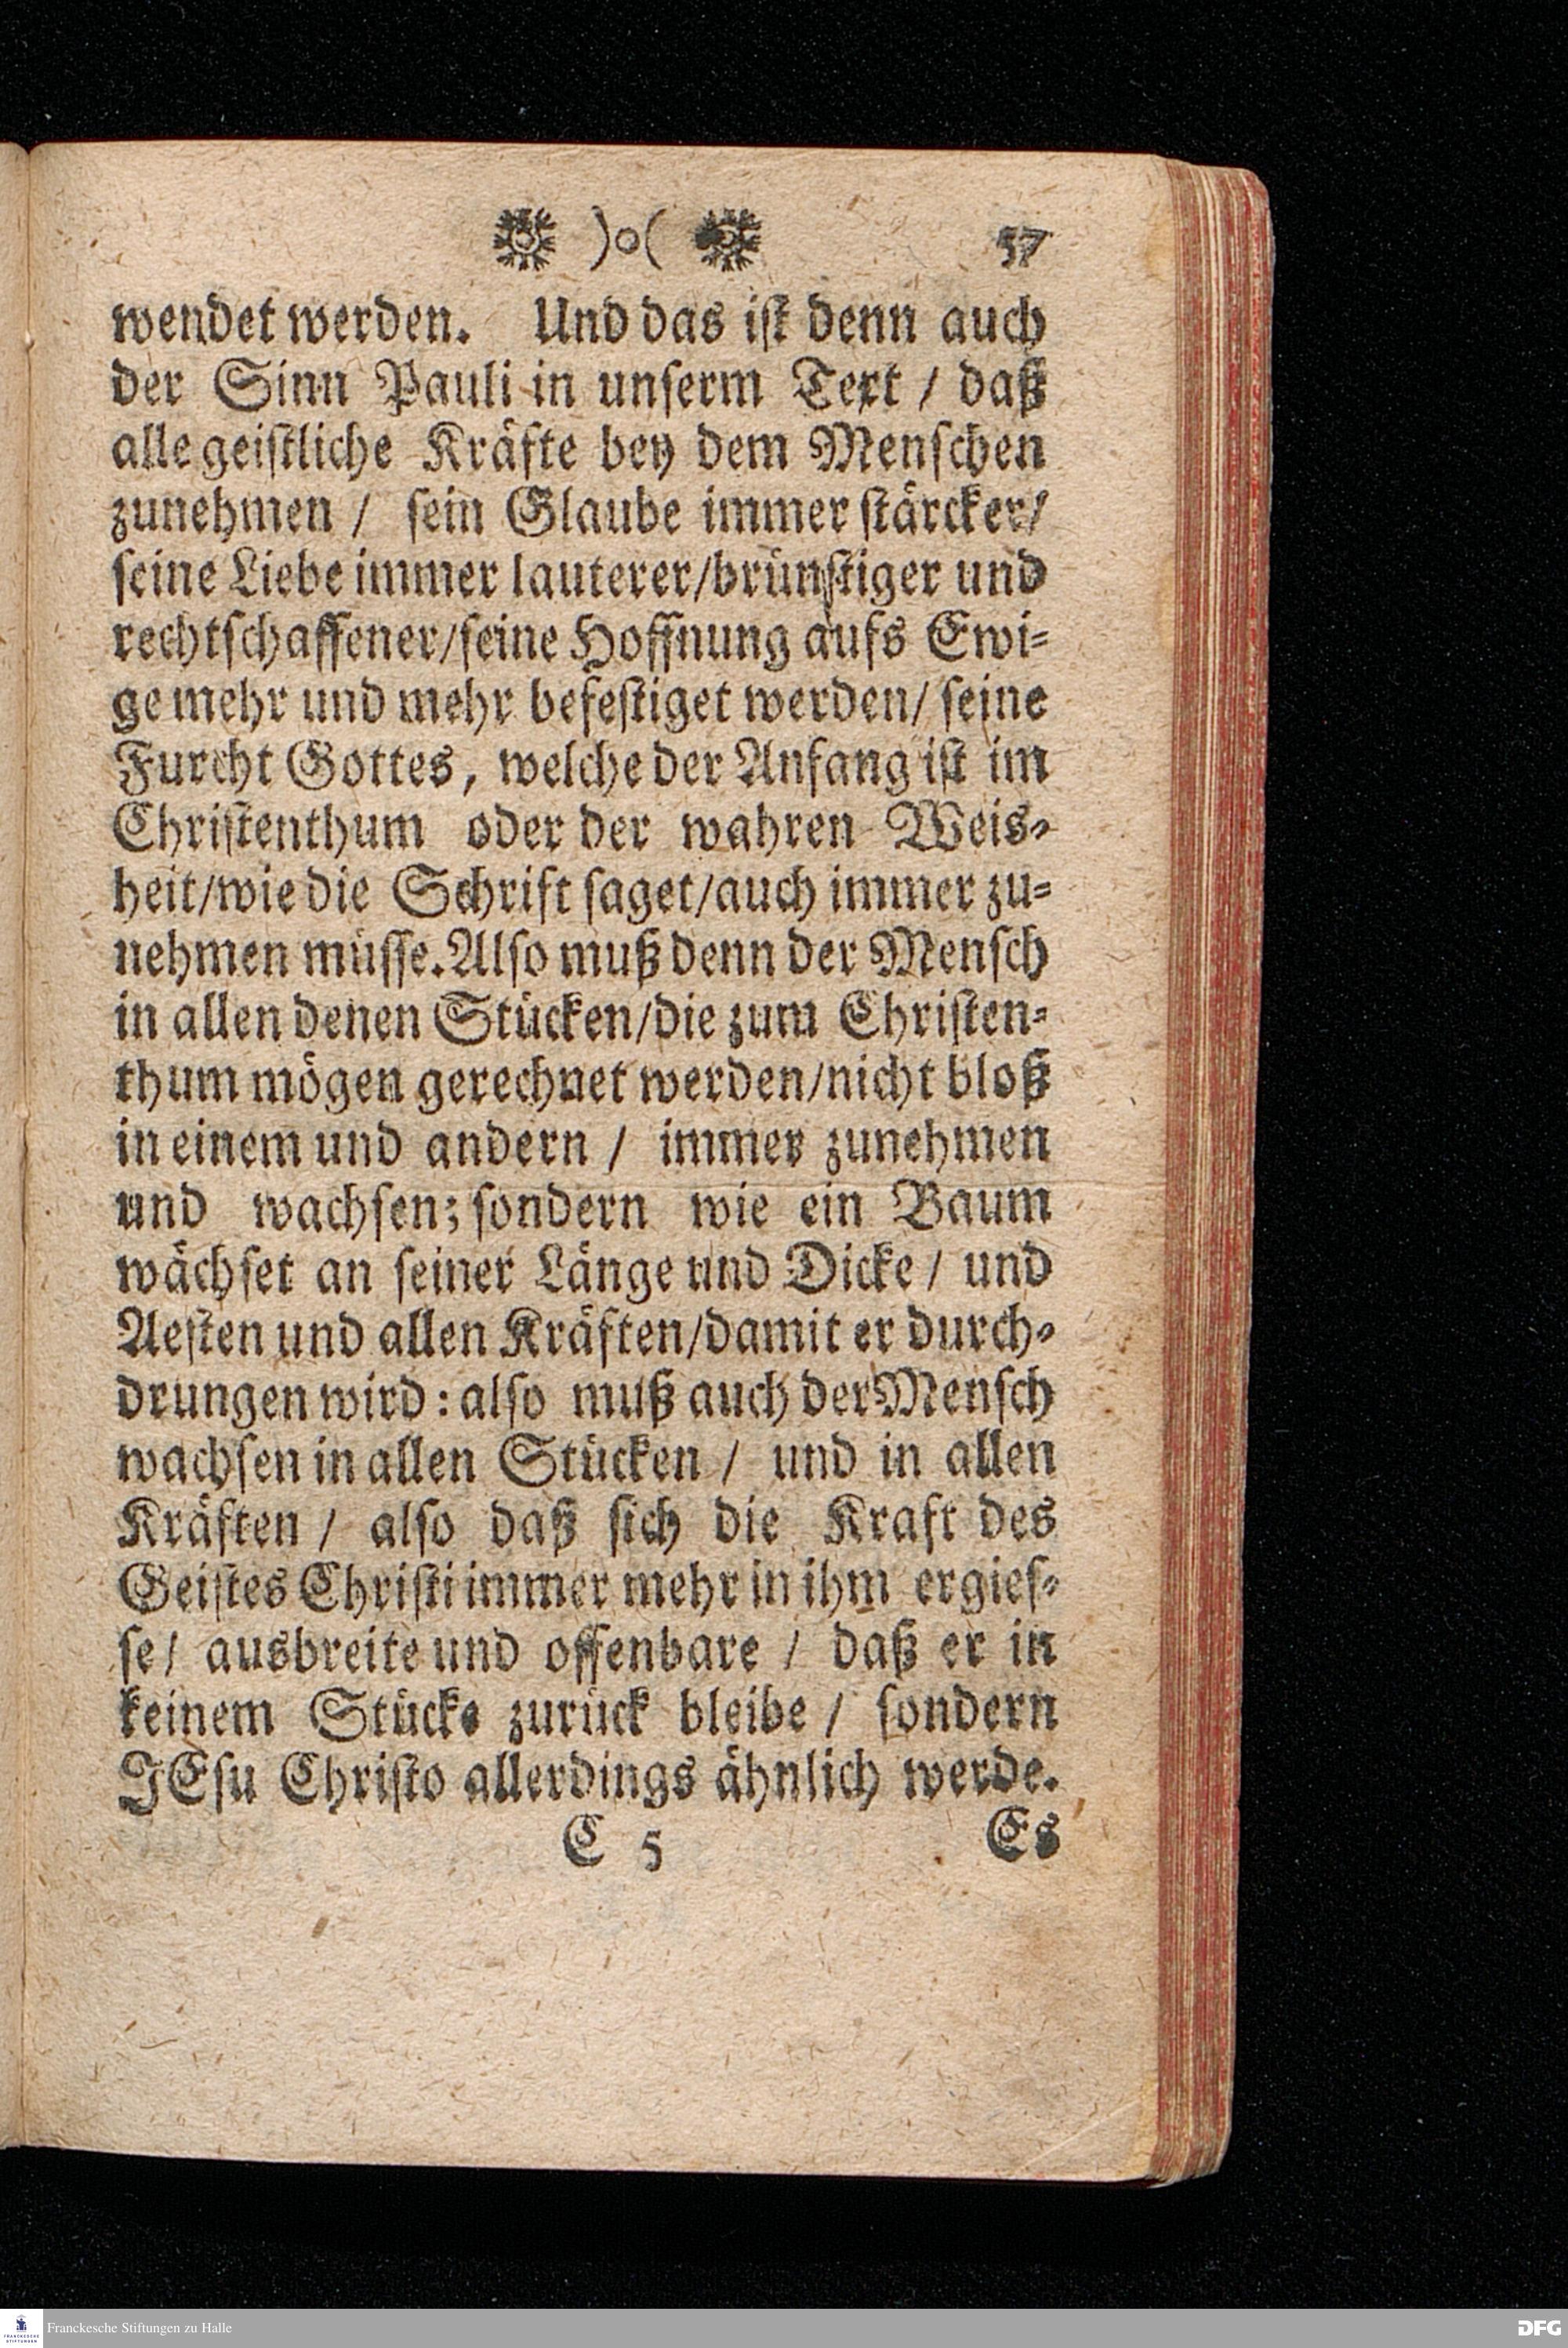 )o( 57
wendet werden. Und das ist denn auch
der Sinn Pauli in unserm Text / daß
alle geistliche Kräfte bey dem Menschen
zunehmen / sein Glaube immer stärcker/
seine Liebe immer lauterer/brünstiger und
rechtschaffener/seine Hoffnung aufs Ewi-
ge mehr und mehr befestiget werden/ seine
Furcht Gottes, welche der Anfang ist im
Christenthum oder der wahren Weis-
heit/wie die Schrift saget/auch immer zu-
nehmen müsse. Also muß denn der Mensch
in allen denen Stücken/die zum Christen-
thum mögen gerechnet werden/nicht bloß
in einem und andern / immer zunehmen
und wachsen; sondern wie ein Baum
wächset an seiner Länge und Dicke / und
Aesten und allen Kräften/damit er durch-
drungen wird: also muß auch der Mensch
wachsen in allen Stücken / und in allen
Kräften / also daß sich die Kraft des
Geistes Christi immer mehr in ihm ergies-
se/ ausbreite und offenbare / daß er in
keinem Stücke zurück bleibe / sondern
JEsu Christo allerdings ähnlich werde.
C 5 Es
FRANCKESCHE STIFTUNGEN
Franckesche Stiftungen zu Halle
DFG